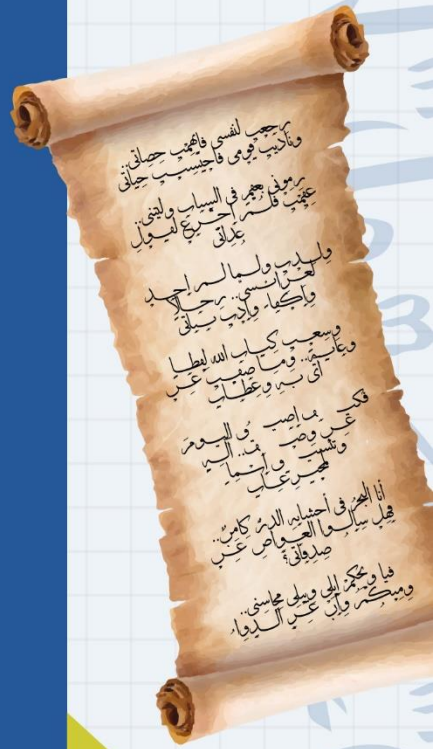 رجعت لنفسي فاتهمت حصاتي..
وناديت قومي فاحتسبت حياتي
رموني بعقم في الشباب وليتني..
عقمت فلم أجزع لقول
عداتي
ولدت ولما لم أجد
لعرائسي.. رجالا
وأكفاء وأدت بناتي
وسعت كتاب الله لفظا
وغاية.. وما ضقت عن
آي به وعظات
اليوم
عن
أنا البحر في أحشائه الدر كامن..
فهل سألوا الغواص عن
صدفاتي؟
فيا ويحكم أبلى وتبلى محاسني..
ومنكم وإن عز الدواء